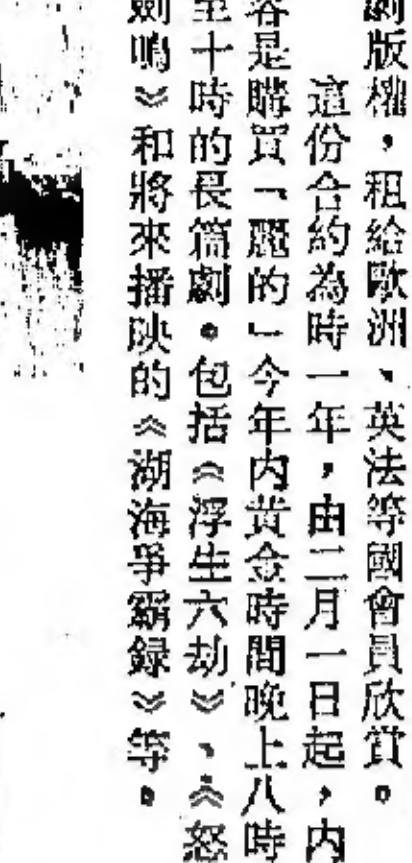 劇版權，租給歐洲、英法等國會員欣賞。
這份合約為時一年，由二月一日起，內
容是購買「麗的」今年内黃金時間晚上八時
至十時的長篇劇。包括《浮生六劫》、《怒
劍鳴》和將來播映的《湖海爭霸録》等。